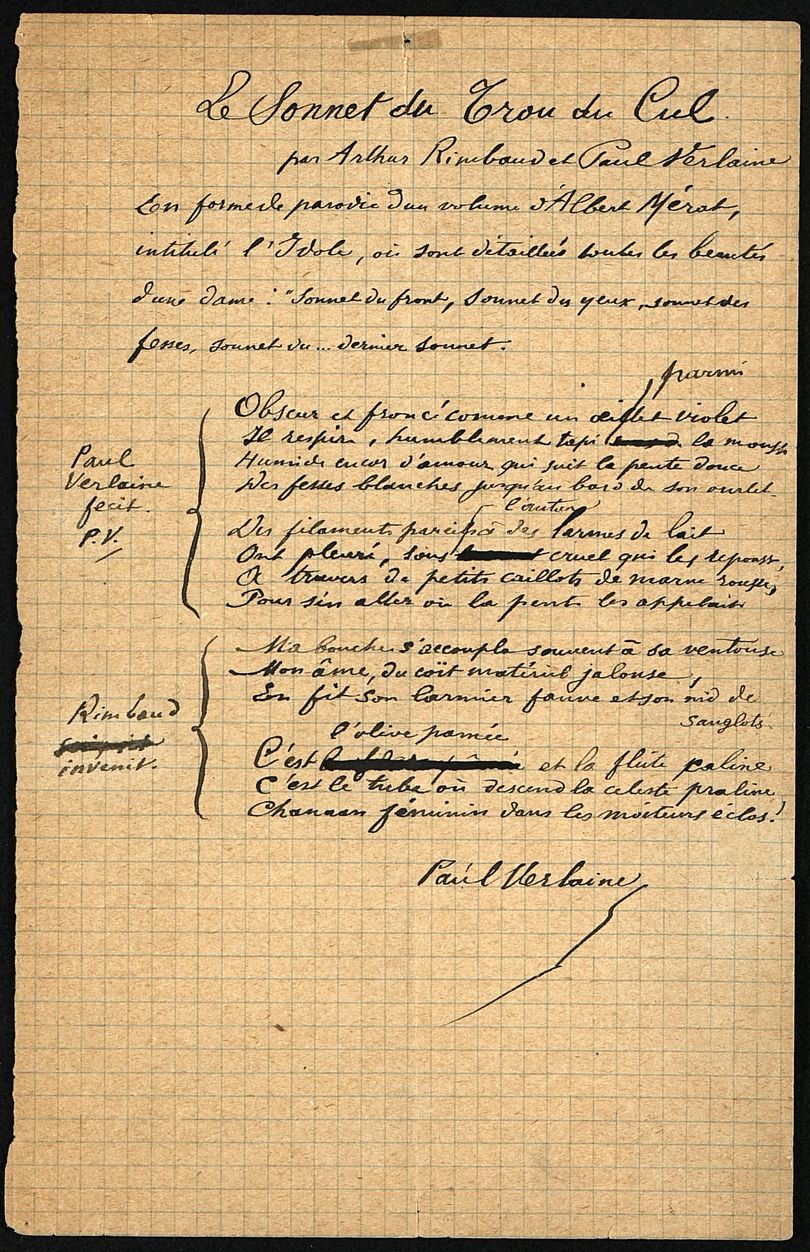 Le Sonnet du Trou du Cul.
par Arthur Rimbaud et Paul Verlaine
En forme de parodie d'un volume d'Albert Mérat,
intitulé l'Idole, où sont détaillées toutes les beautés
d'une dame : "Sonnet du front, Sonnet des yeux, sonnet des
fesses, sonnet du... dernier sonnet.
parmi
Obscur et froncé comme un œillet violet
Il respire, humblement tapi la mousse
Humide encor d'amour qui suit la pente douce
Des fesses blanches jusqu'au bord de son ourlet.
l'autan
Des filaments pareils à des larmes de lait
Ont pleuré, sous cruel qui les repousse,
À travers de petits caillots de marne rousse,
Pour s'en aller où la pente les appelait.
Paul
Verlaine
fecit.
P.V.
Ma bouche s'accoupla souvent à sa ventouse
Mon âme, du coït matériel jalouse,
En fit son larmier fauve et son nid de
sanglots.
l'olive pamée
C'est et la flûte caline
C'est le tube où descend la celeste praline
Chanaan féminin dans les moiteurs éclos!
Rimbaud
invenit.
Paul Verlaine